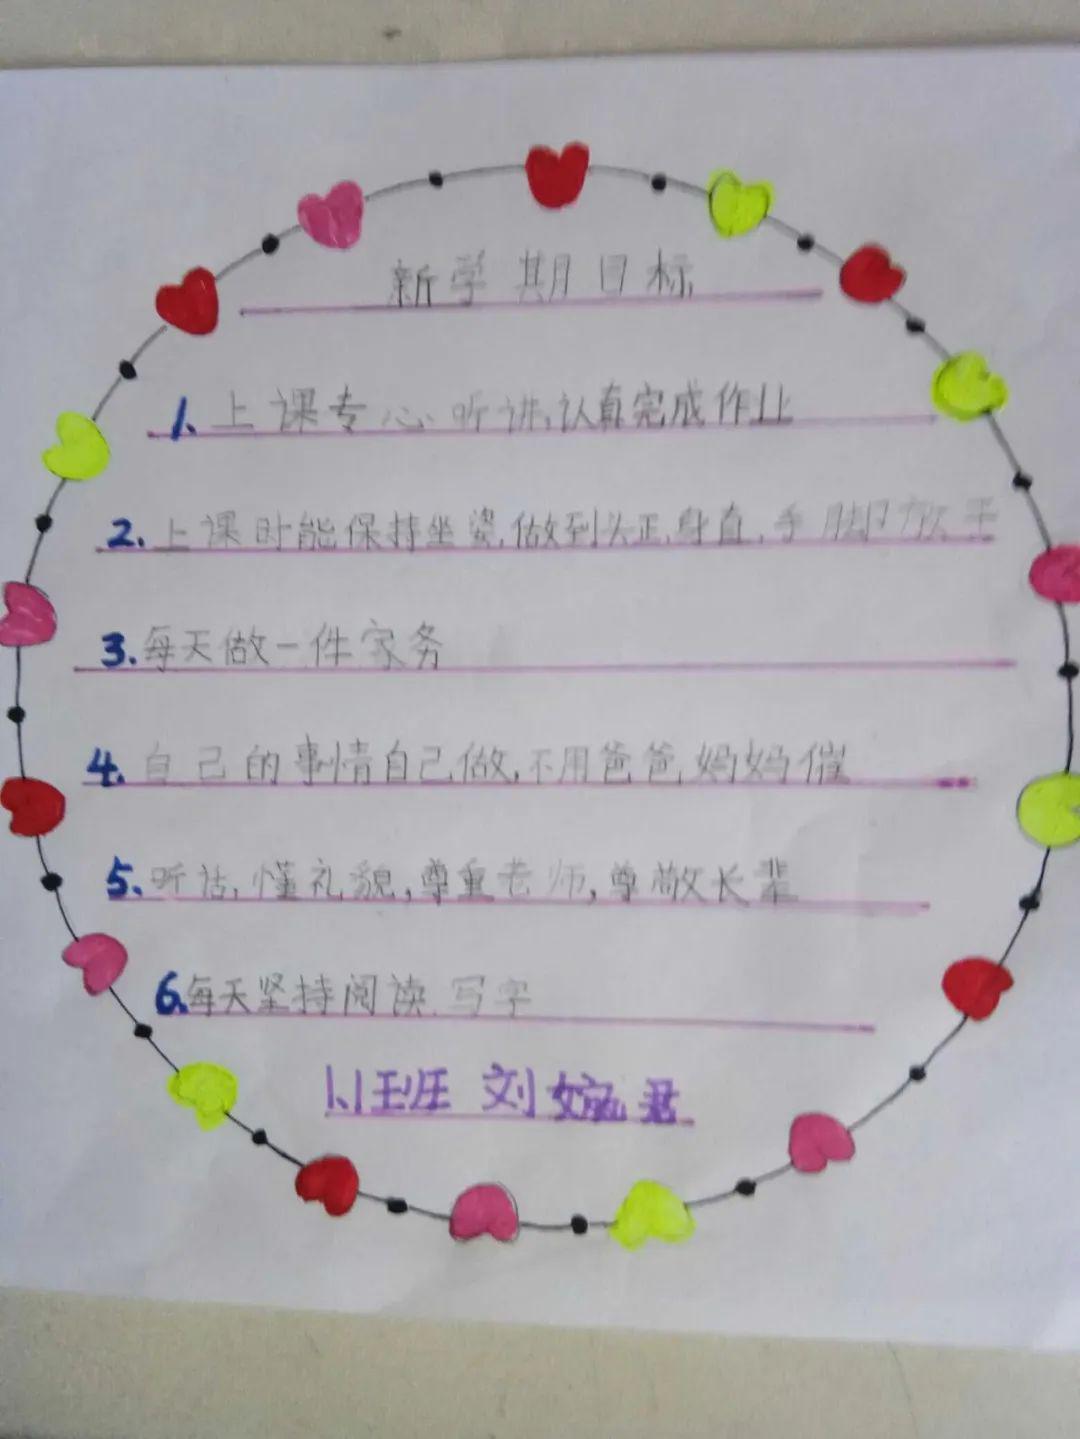 新学期目标
1.上课专心听讲,认真完成作业
2.上课时能保持坐姿,做到头正,身直,手脚放
3.每天做一件家务
4.自己的事情自己做,不用爸爸妈妈催
5.听话,懂礼貌,尊重老师,尊敬长辈
6.每天坚持阅读.写字
1.1班 刘婉君